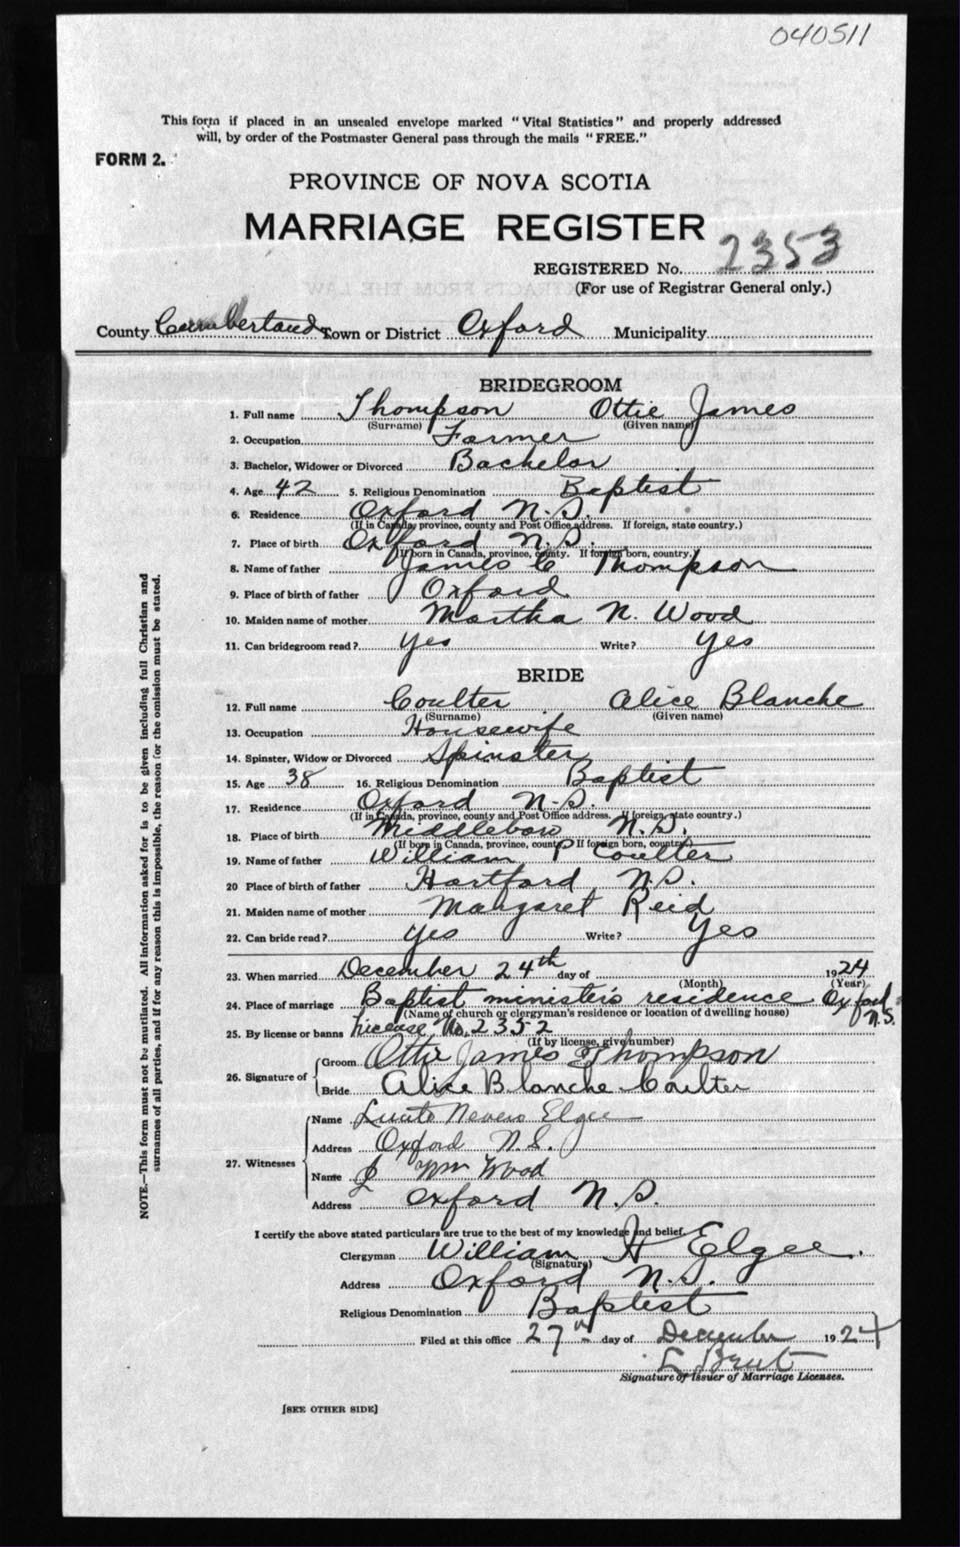 040511
This form if placed in an unsealed envelope marked "Vital Statistics" and properly addressed
will, by order of the Postmaster General pass through the mails "FREE."
FORM 2.
PROVINCE OF NOVA SCOTIA
MARRIAGE REGISTER
REGISTERED No. 2353
(For use of Registrar General only.)
County Cumberland Town or District Oxford Municipality
BRIDEGROOM
1. Full name Thompson Ottie James
(Surname) (Given name)
2. Occupation Farmer
3. Bachelor, Widower or Divorced Bachelor
4. Age 42 5. Religious Denomination Baptist
6. Residence Oxford N.S.
(If in Canada, province, county and Post Office address. If foreign, state country.)
7. Place of birth Oxford N.S.
(If born in Canada, province, county. If foreign born, country.)
8. Name of father James C Thompson
9. Place of birth of father Oxford
10. Maiden name of mother Martha N. Wood
11. Can bridegroom read? Yes Write? Yes
BRIDE
12. Full name Coulter Alice Blanche
(Surname) (Given name)
13. Occupation Housewife
14. Spinster, Widow or Divorced Spinster
15. Age 38 16. Religious Denomination Baptist
17. Residence Oxford N.S.
(If in Canada, province, county and Post Office address. If foreign, state country.)
18. Place of birth Middleboro N.S.
(If born in Canada, province, county. If foreign born, country.)
19. Name of father William P Coulter
20 Place of birth of father Hartford N.S.
21. Maiden name of mother Margaret Reid
22. Can bride read? Yes Write? Yes
23. When married December 24th day of 1924
(Month) (Year)
24. Place of marriage Baptist minister's residence Oxford N.S.
(Name of church or clergyman's residence or location of dwelling house)
25. By license or banns License No. 2352
(If by license, give number)
26. Signature of Groom Ottie James Thompson
Bride Alice Blanche Coulter
27. Witnesses
Name Nevers Elgee
Address Oxford N.S.
Name Wm Wood
Address Oxford N.S.
I certify the above stated particulars are true to the best of my knowledge and belief.
Clergyman William H Elgee.
(Signature)
Address Oxford N.S.
Religious Denomination Baptist
Filed at this office 27th day of December 1924
Signature of Issuer of Marriage Licenses.
[SEE OTHER SIDE]
NOTE.—This form must not be mutilated. All information asked for is to be given including full Christian and
surnames of all parties, and if for any reason this is impossible, the reason for the omission must be stated.